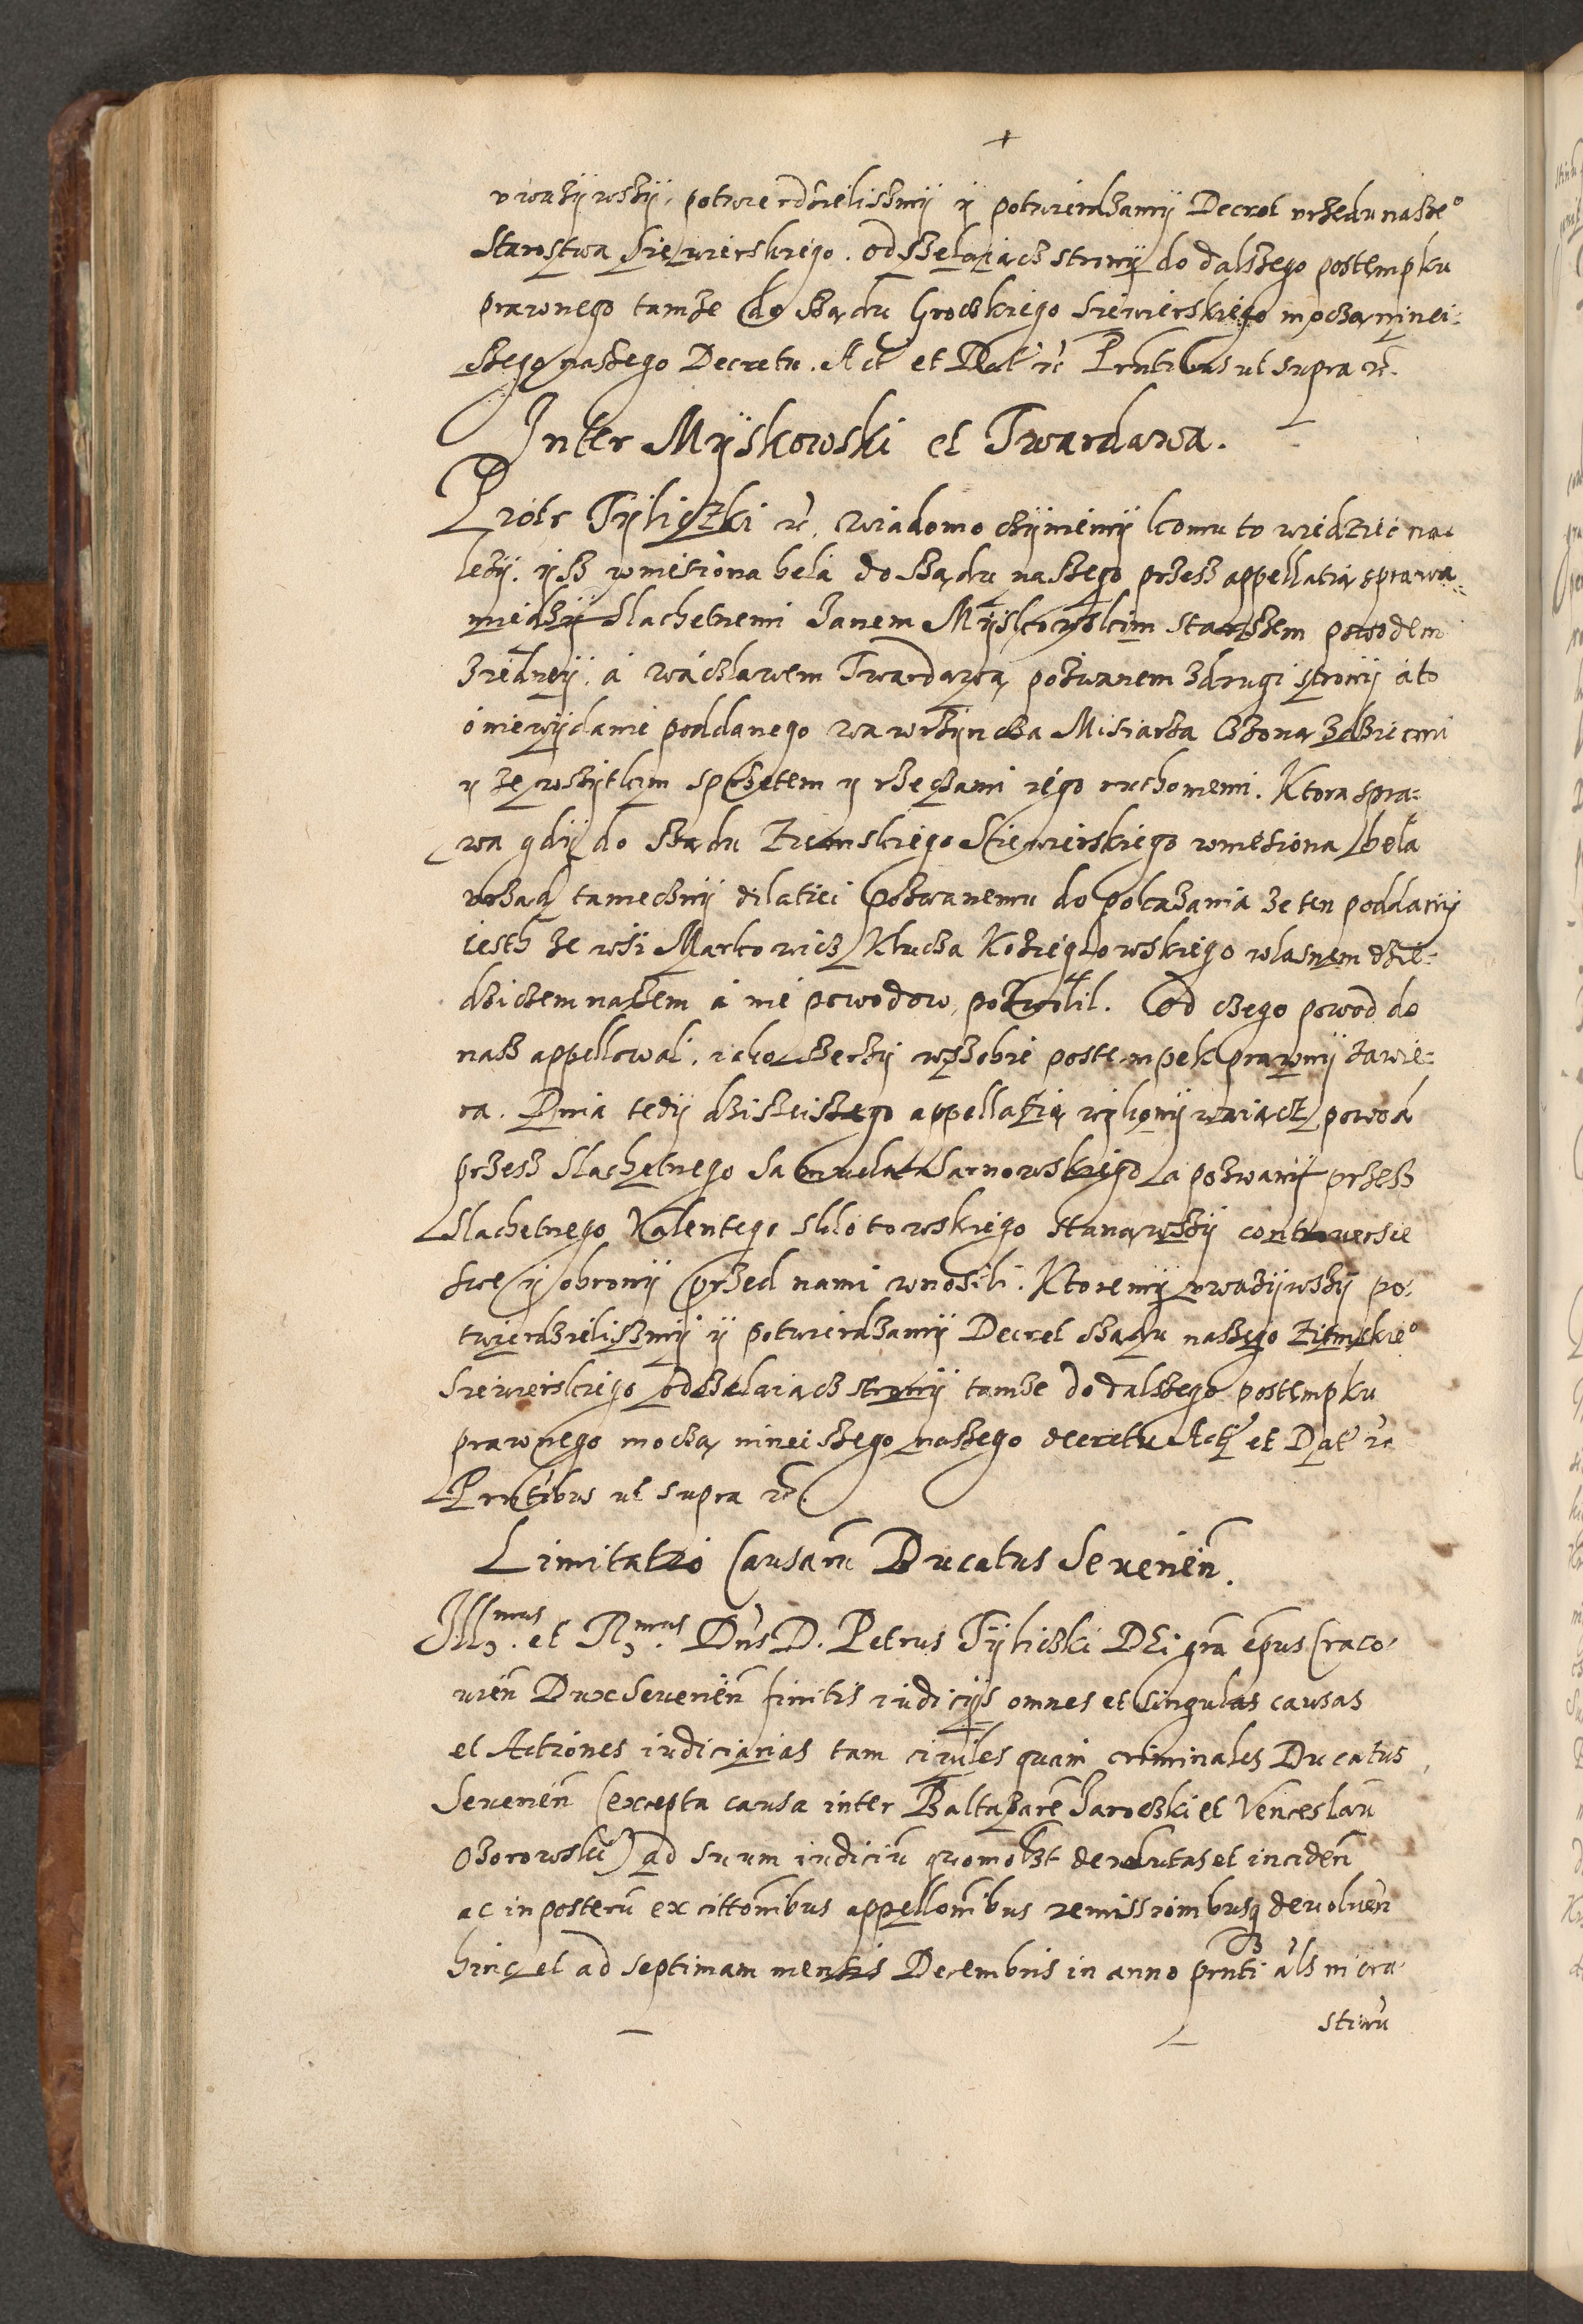 +
vwazÿwszÿ, potwierdzieliszmÿ ÿ potwierdzamÿ Decret vrzedu nasze°
Starostwa Siewierskiego. odszelaiącz stronÿ do dalszego postempku
prawnego tamze do sządu Groczkiego Siewierskiego moczą ninei:
szego naszego Decretu. Act et Dat rc Prntibus ut supra rc.
Inter Mÿskowski et Twardawa.
Piotr Tÿliczki rc. Wiadomo czÿniemÿ komu to wiedziec na:
lezÿ. ysz wniesiona bela do sządu naszego przesz appellatią sprawa
miedzÿ Slachetnemi Janem Mÿskowskim starszem powodem
ziednÿ, á wáczlawem Twardawą pozwanem zdrugi stronÿ áto
ó niewÿdanie poddanego wawrzÿncza Misiarza zżoną zdziecmi
y ze wszÿtkim sprzetem y rzeczami iégo ruchomemi. Ktora spra:
wa gdÿ do sządu Ziemskiego Siewierskiego wniesiona bela
vrząd tameczny dilatiei Pozwanemu do pokazania ze ten poddanÿ
iesth ze wsi Markowicz Klucza Koziegłowskiego wlasnem dzie:
dziczem naszem á nie powodow, pozwolil. Od czego powod do
nasz appellowal. iako szerzÿ wszobie postempek prawnÿ zawie:
ra. Dnia tedÿ dzisieiszego appellatią wÿkonÿwaiącz powod
przesz Slachetnego Samuela Sarnowskiego a pozwanÿ przesz
Slachetnego Walentego Sklotowskiego stanąwszÿ controuersie
swe ÿ obronÿ przed nami wnosili. Ktore mÿ vwazÿwszÿ po:
twierdzieliszmÿ ÿ potwierdzamÿ Decret sządu naszego Ziemskie°
Siewierskiego odszelaiącz stronÿ tamze do dalszego postempku
prawnego moczą ninieiszego naszego decretu Act et Dat rc
Prntibus ut supra rc.
Limitatio Causarū Ducatus Seuerieñ.
Illmus. et Rmus. Dns D. Petrus Tÿliczki Dei gra epus Craco:
uieñ Dux Seuerieñ finitis iudicÿs omnes et singulas causas
et Actiones iudiciarias tam ciuiles quam criminales Ducatus
Seuerieñ (excepta causa inter Baltazarē Jaroczki et Venceslaū
Ozorowskí) ad suum iudiciū quomolzt deuolutas et incideñ
ac inposterū ex cittonibus appellonibus remissionibusq deuolueñ
hinc et ad septimam mensis Decembris in anno prnti als in cra:
stinū